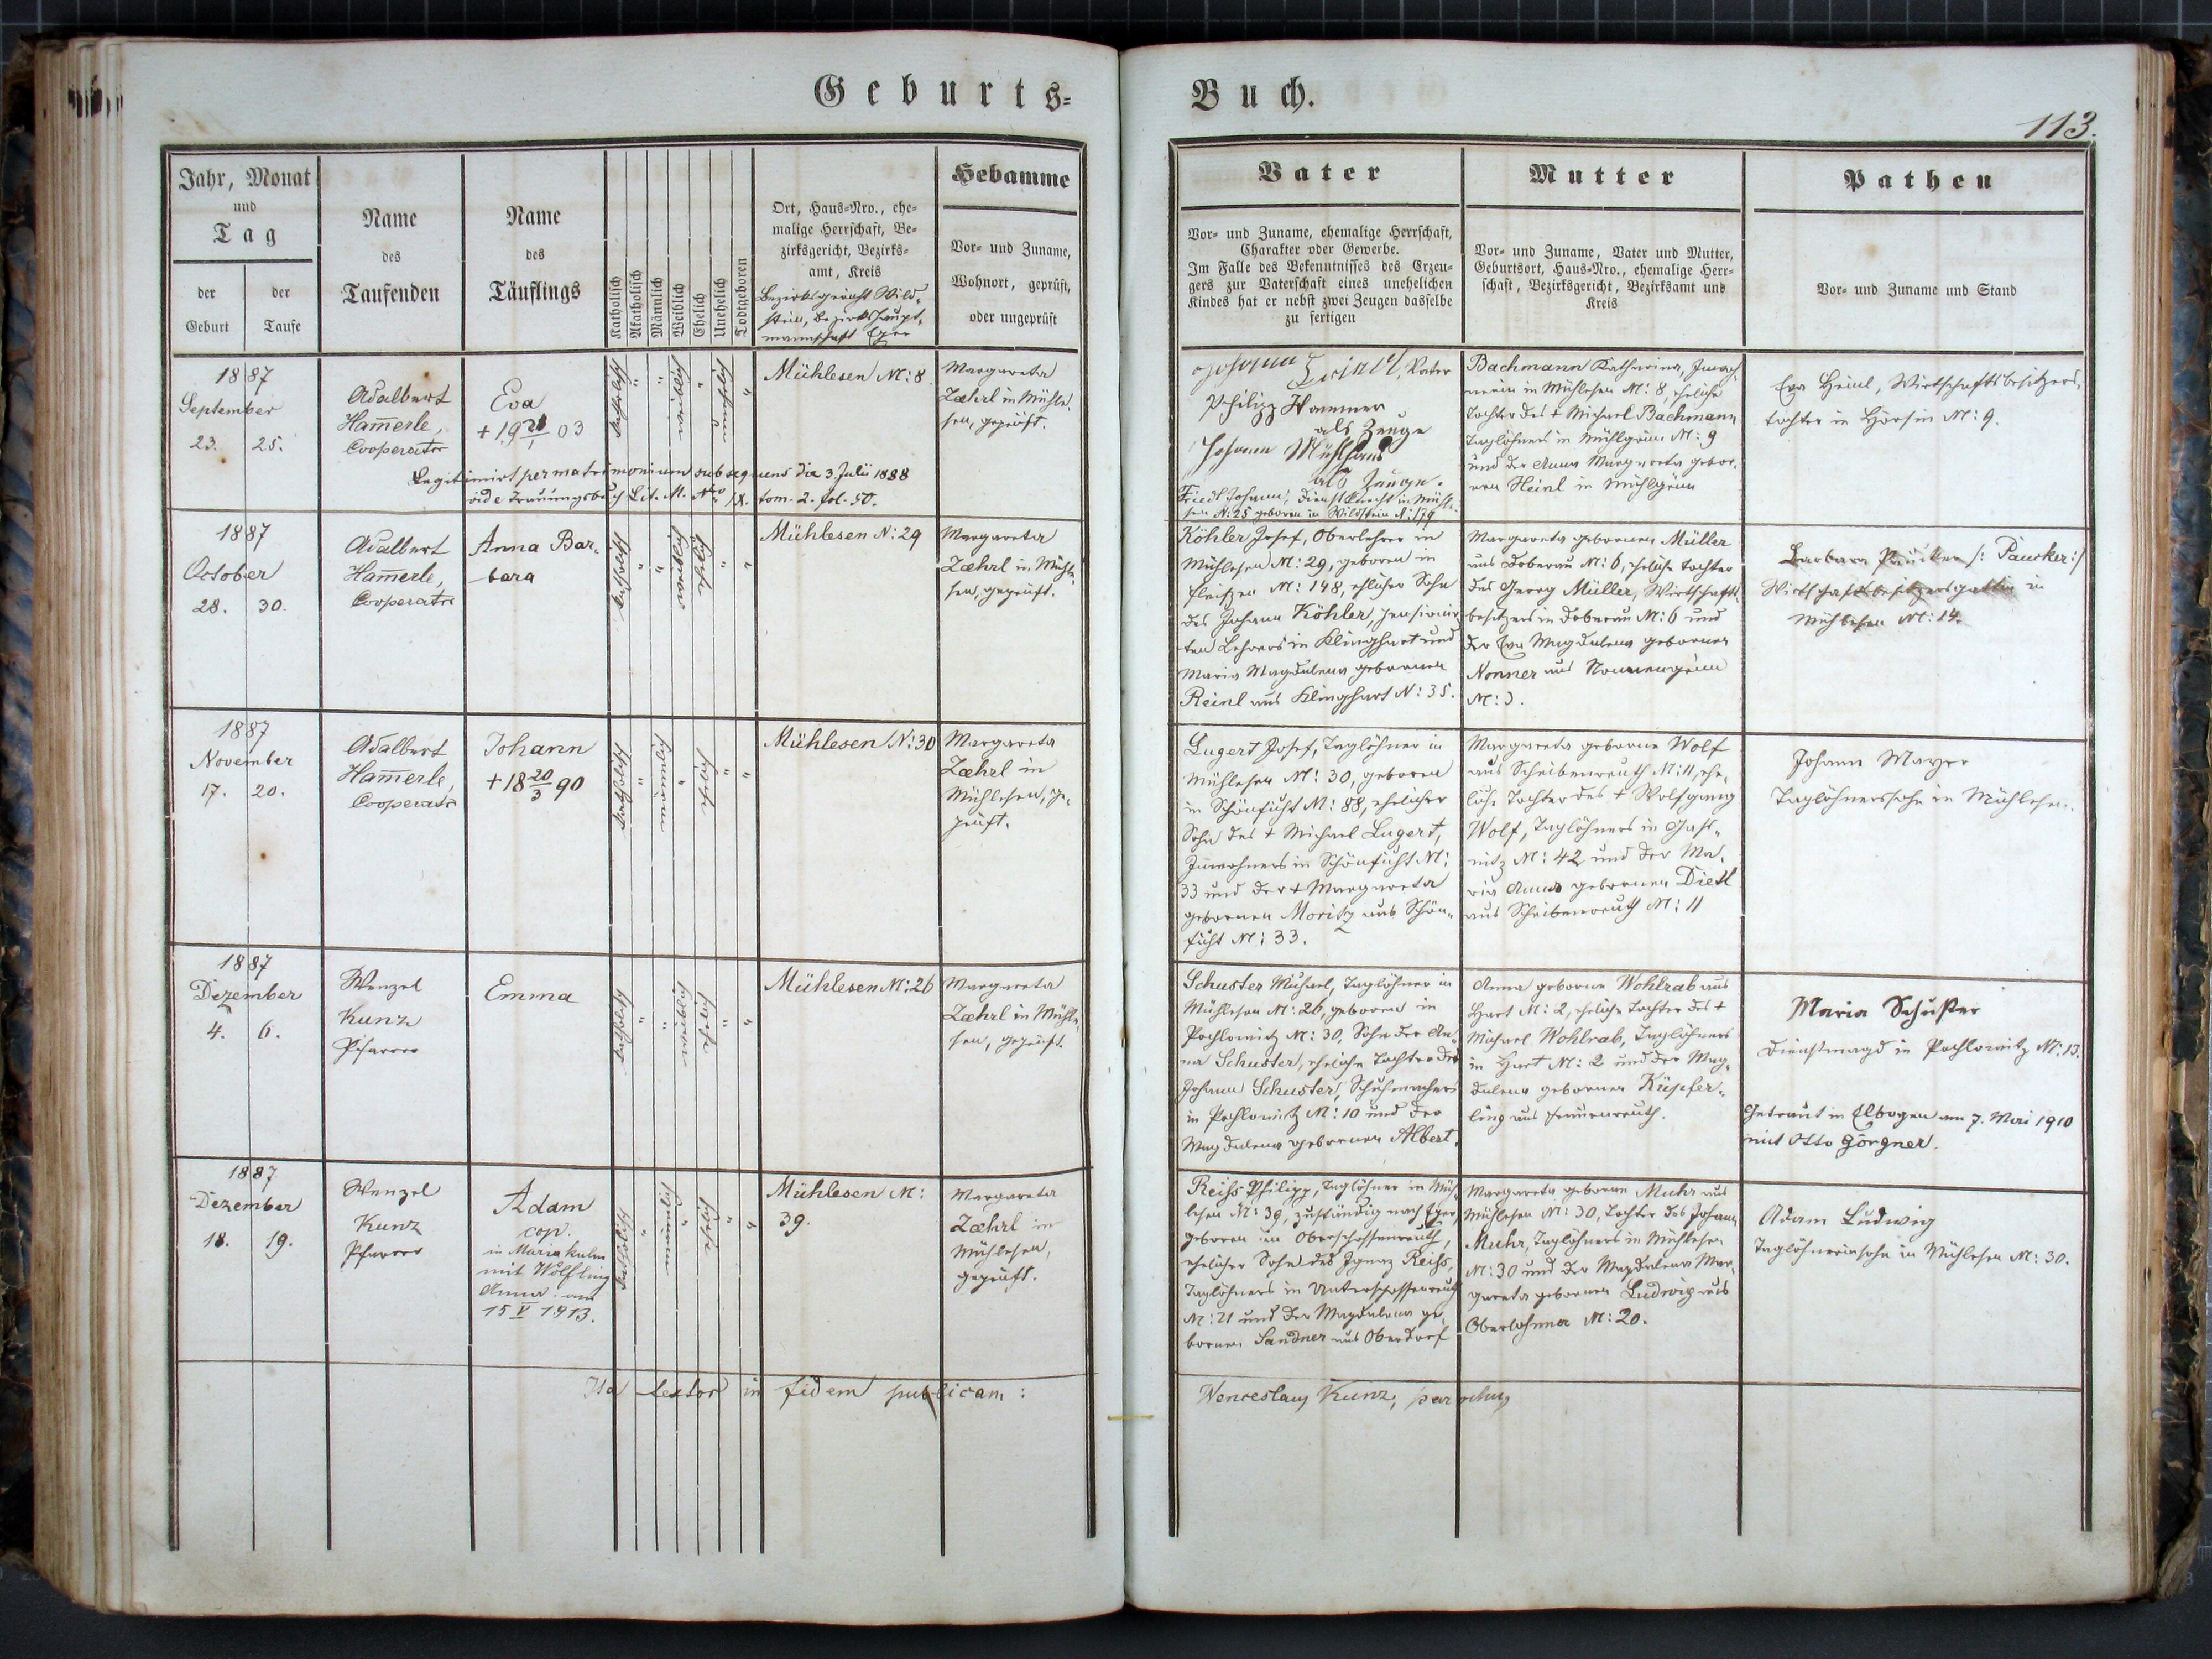 Geburts=
Buch.
113.
Jahr, Monat
und
Tag
der
Geburt
der
Taufe
Name
des
Taufenden
Name
des
Täuflings
Katholisch
Akatholisch
Männlich
Weiblich
Ehelich
Unehelich
Todtgeboren
Ort, Haus=Nro., ehe=
malige Herrschaft, Be=
zirksgericht, Bezirks=
amt, Kreis
Bezirksgericht Wild=
stein, Bezirkshaupt=
mannschaft Eger
Hebamme
Vor= und Zuname,
Wohnort, geprüft,
oder ungeprüft
Vater
Vor= und Zuname, ehemalige Herrschaft,
Charakter oder Gewerbe.
Im Falle des Bekenntnisses des Erzeu=
gers zur Vaterschaft eines unehelichen
Kindes hat er nebst zwei Zeugen dasselbe
zu fertigen
Mutter
Vor= und Zuname, Vater und Mutter,
Geburtsort, Haus=Nro., ehemalige Herr=
schaft, Bezirksgericht, Bezirksamt und
Kreis
Pathen
Vor= und Zuname und Stand
1887
September
23. 25.
Adalbert
Ham̅erle,
Cooperator
Eva
+ 19 03
Legitimirt per matrimonium subsequens die 3. Julii 1888
vide Trauungsbuch Lit. M. Nro IX. tom. 2. fol. 50.
katholisch
"
"
weiblich
"
unehelich
"
Mühlesen N: 8.
Margareta
Zæhrl in Mühle=
sen, geprüft.
Vater
Philipp Hammer
als Zeuge
Johann Mühlhans
als Zeuge.
Friedl Johann, Dienstknecht in Mühle=
sen N: 25 geboren in Wildstein N: 179
Bachmann Katharina, Inwoh=
nerin in Mühlesen N: 8, eheliche
Tochter des + Michael Bachmann
Taglöhners in Mühlgrün N: 9
und der Anna Margareta gebor=
nen Heinl in Mühlgrün
Eva Heinl, Wirtschaftsbesitzers=
tochter in Hörsin N: 9.
1887
October
28. 30.
Adalbert
Ham̅erle,
Cooperator
Anna Bar=
bara
katholisch
"
"
weiblich
ehelich
"
"
Mühlesen N: 29
Margareta
Zæhrl in Mühle=
sen, geprüft.
Köhler Josef, Oberlehrer in
Mühlesen N: 29, geboren in
Fleißen N: 148, ehlicher Sohn
des Johann Köhler, pensionir=
ten Lehrers in Klinghart und
Maria Magdalena gebornen
Reinl aus Klinghart N: 35.
Margareta gebornen Müller
aus Doberau N: 6, eheliche Tochter
des Georg Müller, Wirtschafts=
besitzers in Doberau N: 6 und
der Eva Magdalena gebornen
Nonner aus Nonnengrün
N: 3.
Barbara Paucker /: Paucker :/
Wirtschaftsbesitzersgattin in
Mühlesen N: 14.
1887
November
17. 20.
Adalbert
Ham̅erle,
Cooperator
Johann
+ 18 20/3 90
katholisch
"
männlich
"
ehelich
"
"
Mühlesen N: 30
Margareta
Zæhrl in
Mühlesen, ge=
prüft.
Lugert Josef, Taglöhner in
Mühlesen N: 30, geboren
in Schönficht N: 88, ehelicher
Sohn des + Michael Lugert,
Inwohners in Schönficht N:
33 und der + Margareta
gebornen Moritz aus Schön=
ficht N: 33.
Margareta geborne Wolf
aus Scheibenreuth N: 11, ehe=
liche Tochter des + Wolfgang
Wolf, Taglöhners in Gaß=
nitz N: 42 und der Ma=
ria Anna gebornen Dietl
aus Scheibenreuth N: 11
Johann Mayer
Taglöhnerssohn in Mühlesen.
1887
Dezember
4. 6.
Wenzel
Kunz
Pfarrer
Emma
katholisch
"
"
weiblich
ehelich
"
"
Mühlesen N: 26
Margareta
Zæhrl in Mühle=
sen, geprüft.
Schuster Michael, Taglöhner in
Mühlesen N: 26, geboren in
Pochlowitz N: 30, Sohn der An=
na Schuster, eheliche Tochter des
Johann Schuster, Schuhmachers
in Pochlowitz N: 10 und der
Magdalena gebornen Albert.
Anna geborne Wohlrab aus
Hart N: 2, eheliche Tochter des +
Michael Wohlrab, Taglöhners
in Hart N: 2 und der Mag=
dalena gebornen Küpfer=
ling aus Frauenreuth.
Maria Schuster
Dienstmagd in Pochlowitz N: 13.
Getraut in Elbogen am 7. Mai 1910
mit Otto Görgner.
1887
Dezember
18. 19.
Wenzel
Kunz
Pfarrer
Adam
cop.
in Maria Kulm
mit Wölfling
Anna am
15 V 1913.
katholisch
"
männlich
"
ehelich
"
"
Mühlesen N:
39.
Margareta
Zæhrl in
Mühlesen,
geprüft.
Reiß Philipp, Taglöhner in Müh=
lesen N: 39, zuständig nach Eger,
geboren in Oberschossenreuth,
ehelicher Sohn des Ignaz Reiß,
Taglöhners in Unterschossenreuth
N: 21 und der Magdalena ge=
bornen Sandner aus Oberdorf
Margareta geborne Muhr aus
Mühlesen N: 30, Tochter des Johann
Muhr, Taglöhners in Mühlesen
N: 30 und der Magdalena Mar=
gareta gebornen Ludwig aus
Oberlohma N: 20.
Adam Ludwig
Taglöhnerssohn in Mühlesen N: 30.
Ita testor in fidem publicam:
Wenceslaus Kunz, parochus